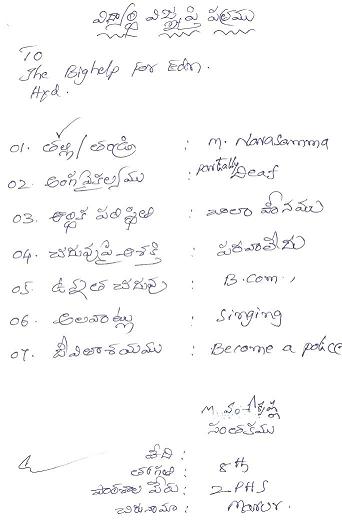 విద్యార్థి విజ్ఞప్తి పత్రము
To
The Bighelp For Edn.
Hyd.
01. తల్లి/తండ్రి : M. Narasamma
02. అంగవైకల్యము : partially Deaf
03. ఆర్థిక పరిస్థితి : చాలా హీనము
04. చదువుపై ఆసక్తి : పరవాలేదు
05. ఉన్నత చదువు : B.com.,
06. అలవాట్లు : Singing
07. జీవితాశయము : Become a police
M.
సంతకము
తేది :
తరగతి : 8th
పాఠశాల పేరు : ZPHS
చిరునామా :